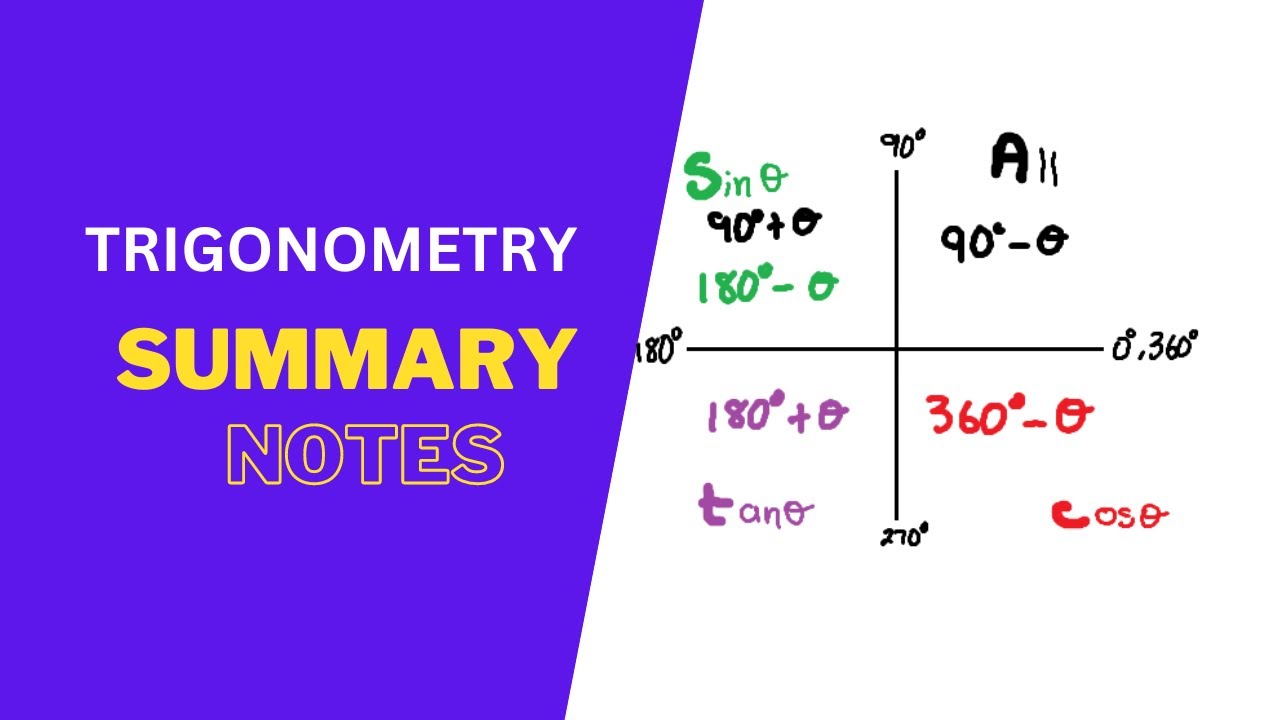 TRIGONOMETRY
SUMMARY
NOTES
90°
All
Sinθ
90°+θ
90°-θ
180°-θ
180°
0°,360°
180°+θ
360°-θ
tanθ
cosθ
270°